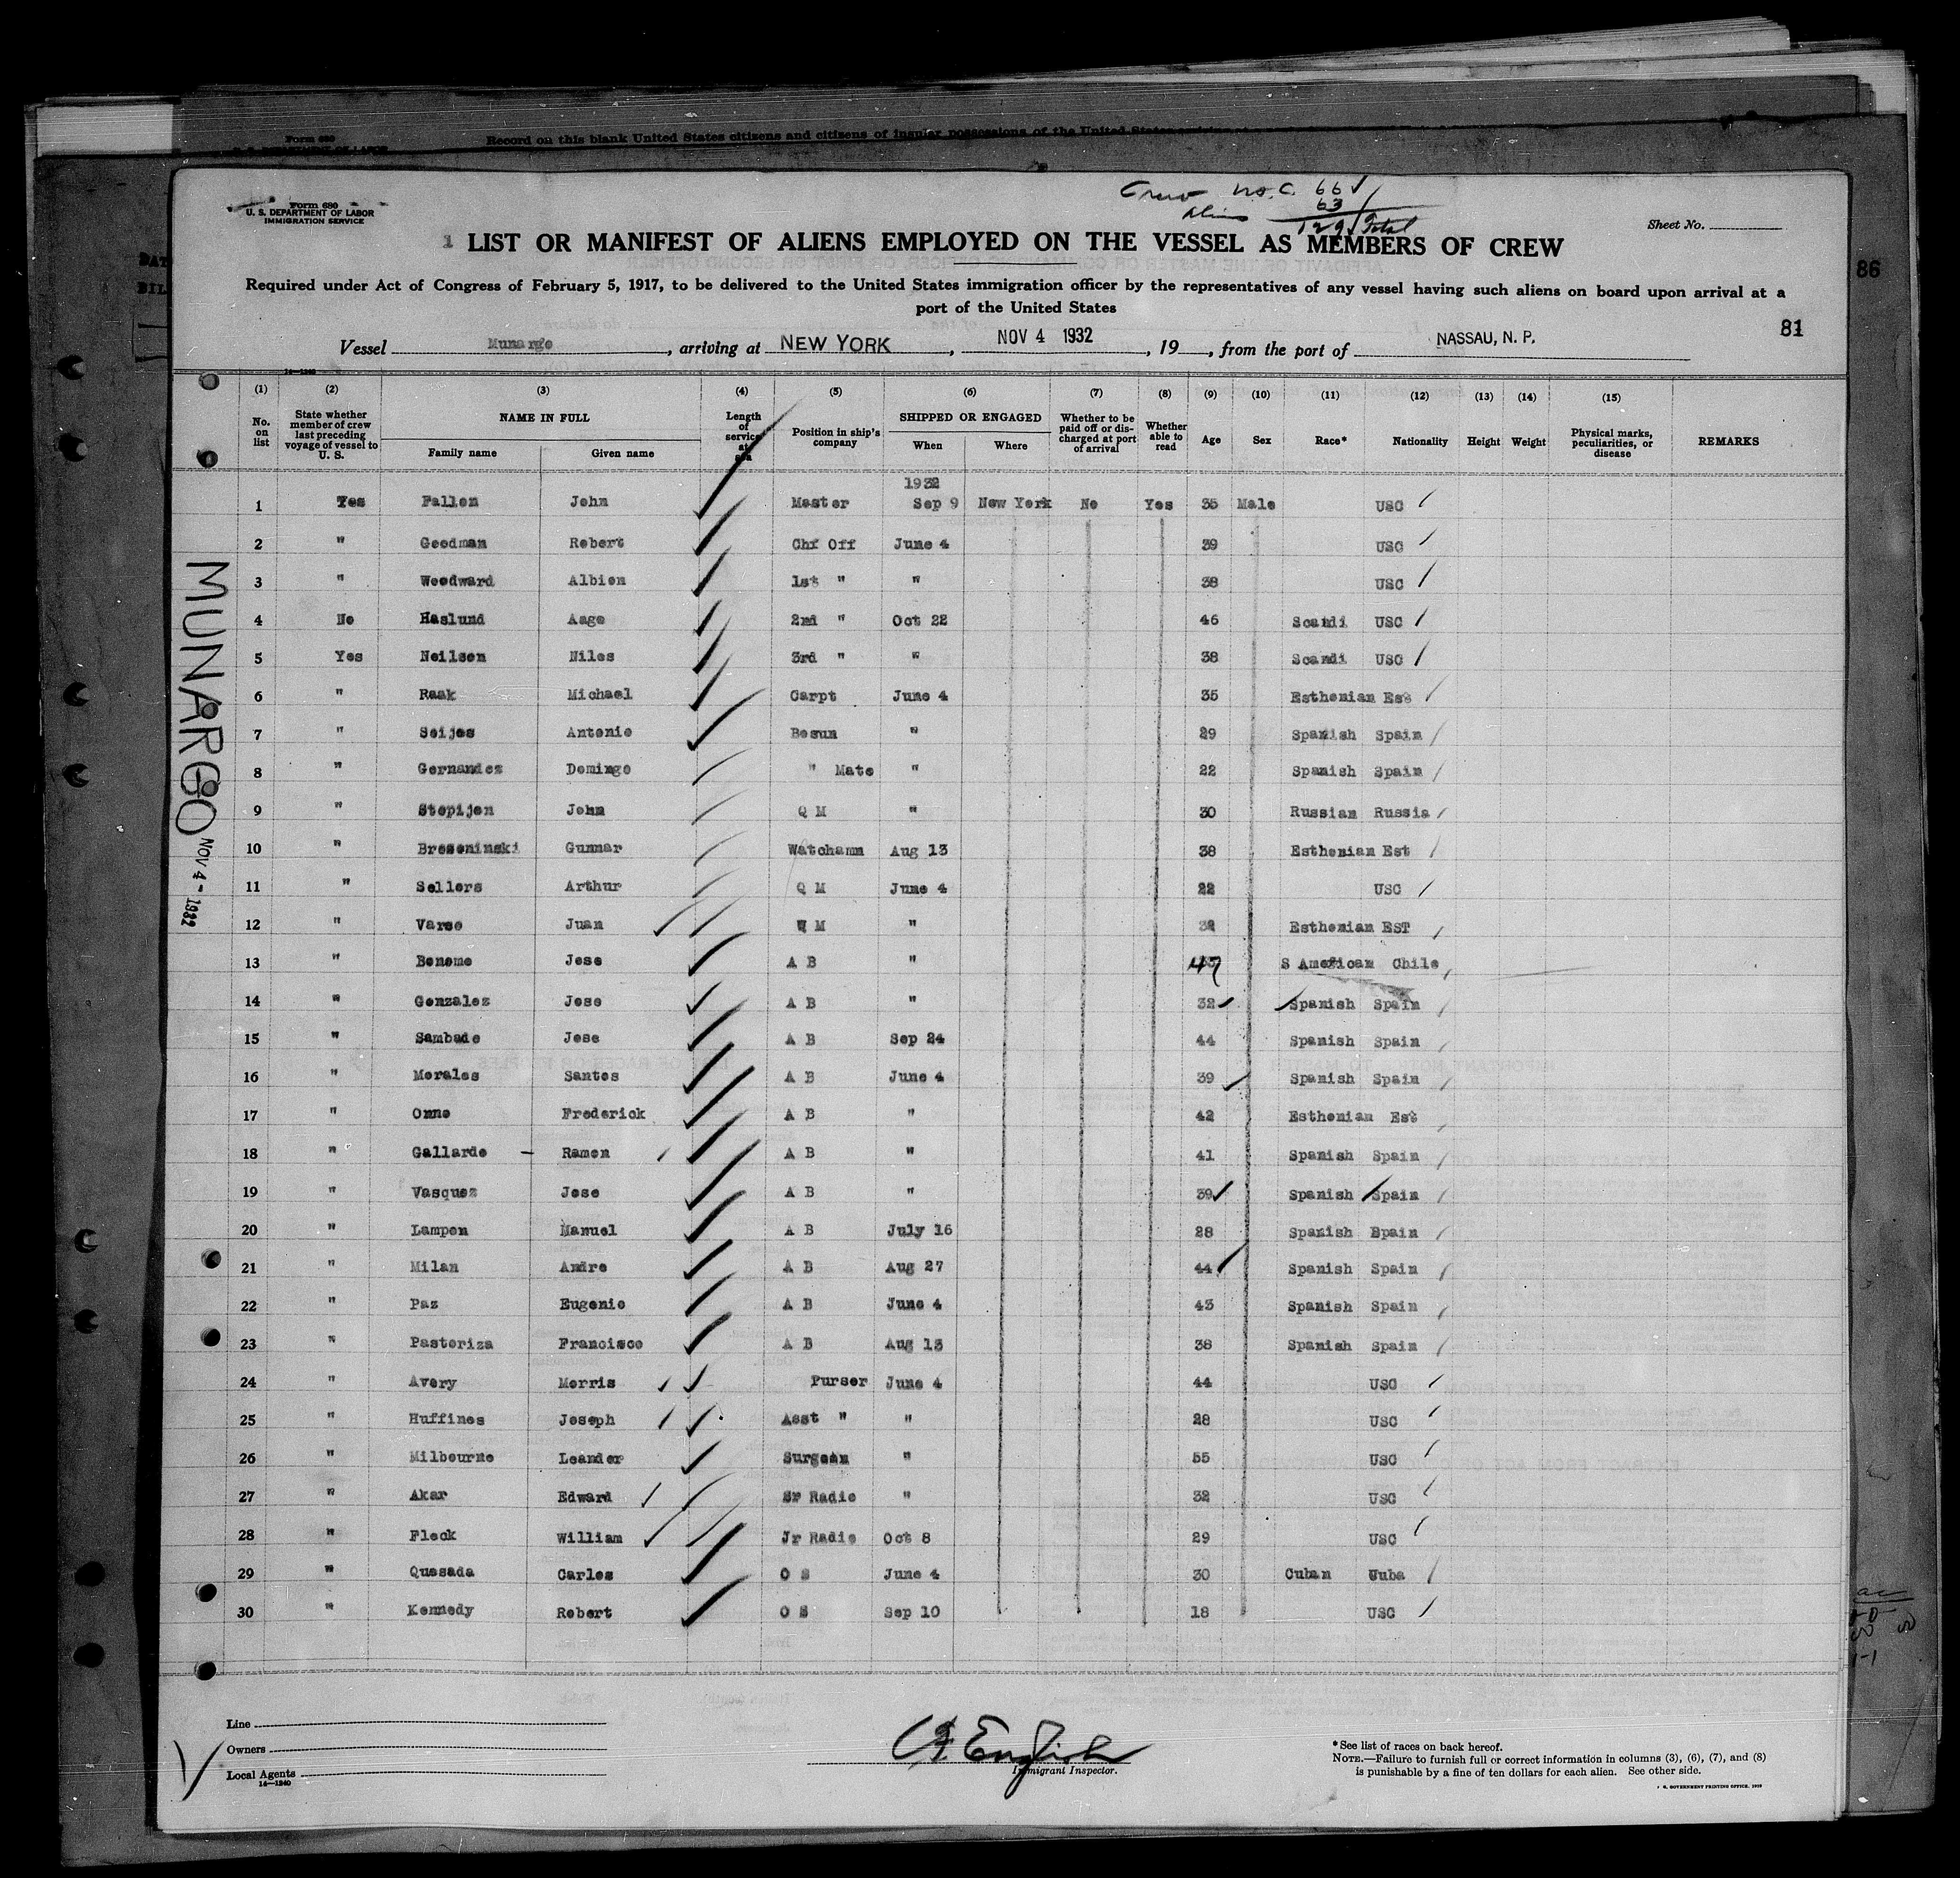 Form 680
Record on this blank United States citizens and citizens of insular possessions of the United States
Crew U.S.C. 66
Alien 63
129 Total
Form 680
U. S. DEPARTMENT OF LABOR
IMMIGRATION SERVICE
Sheet No.
1 LIST OR MANIFEST OF ALIENS EMPLOYED ON THE VESSEL AS MEMBERS OF CREW
86
Required under Act of Congress of February 5, 1917, to be delivered to the United States immigration officer by the representatives of any vessel having such aliens on board upon arrival at a
port of the United States
81
Vessel Munargo, arriving at NEW YORK, NOV 4 1932, 19, from the port of NASSAU, N. P.
(1) (2) (3) (4) (5) (6) (7) (8) (9) (10) (11) (12) (13) (14) (15)
No. on list State whether member of crew last preceding voyage of vessel to U. S. NAME IN FULL Family name Given name Length of service at sea Position in ship's company SHIPPED OR ENGAGED When Where Whether to be paid off or discharged at port of arrival Whether able to read Age Sex Race* Nationality Height Weight Physical marks, peculiarities, or disease REMARKS
1932
1 Yes Fallen John Master Sep 9 New York No Yes 35 Male USC
2 " Goodman Robert Chf Off June 4 39 USC
3 " Woodward Albion 1st " " 38 USC
4 No Haslund Aage 2nd " Oct 22 46 Scandi USC
5 Yes Neilsen Niles 3rd " " 38 Scandi USC
6 " Raak Michael Carpt June 4 35 Esthonian Est
7 " Seijos Antonio Bosun " 29 Spanish Spain
8 " Gernandez Domingo " Mate " 22 Spanish Spain
9 " Stepijon John Q M " 30 Russian Russia
10 " Breseninski Gunnar Watchamn Aug 13 38 Esthonian Est
11 " Sellers Arthur Q M June 4 22 USC
12 " Varso Juan W M " 32 Esthonian EST
13 " Bonome Jose A B " 47 S American Chile
14 " Gonzalez Jose A B " 32 Spanish Spain
15 " Sambade Jose A B Sep 24 44 Spanish Spain
16 " Morales Santos A B June 4 39 Spanish Spain
17 " Onno Frederick A B " 42 Esthonian Est
18 " Gallardo - Ramon A B " 41 Spanish Spain
19 " Vasquez Jose A B " 39 Spanish Spain
20 " Lampon Manuel A B July 16 28 Spanish Spain
21 " Milan Andre A B Aug 27 44 Spanish Spain
22 " Paz Eugenio A B June 4 43 Spanish Spain
23 " Pastoriza Francisco A B Aug 13 38 Spanish Spain
24 " Avery Morris Purser June 4 44 USC
25 " Huffines Joseph Asst " " 28 USC
26 " Milbourne Leander Surgeon " 55 USC
27 " Akar Edward Sr Radio " 32 USC
28 " Fleck William Jr Radio Oct 8 29 USC
29 " Quesada Carlos O S June 4 30 Cuban Cuba
30 " Kennedy Robert O S Sep 10 18 USC
MUNARGO NOV 4 - 1932
Line
Owners
Local Agents
14—1240
English
Immigrant Inspector.
*See list of races on back hereof.
NOTE.—Failure to furnish full or correct information in columns (3), (6), (7), and (8)
is punishable by a fine of ten dollars for each alien. See other side.